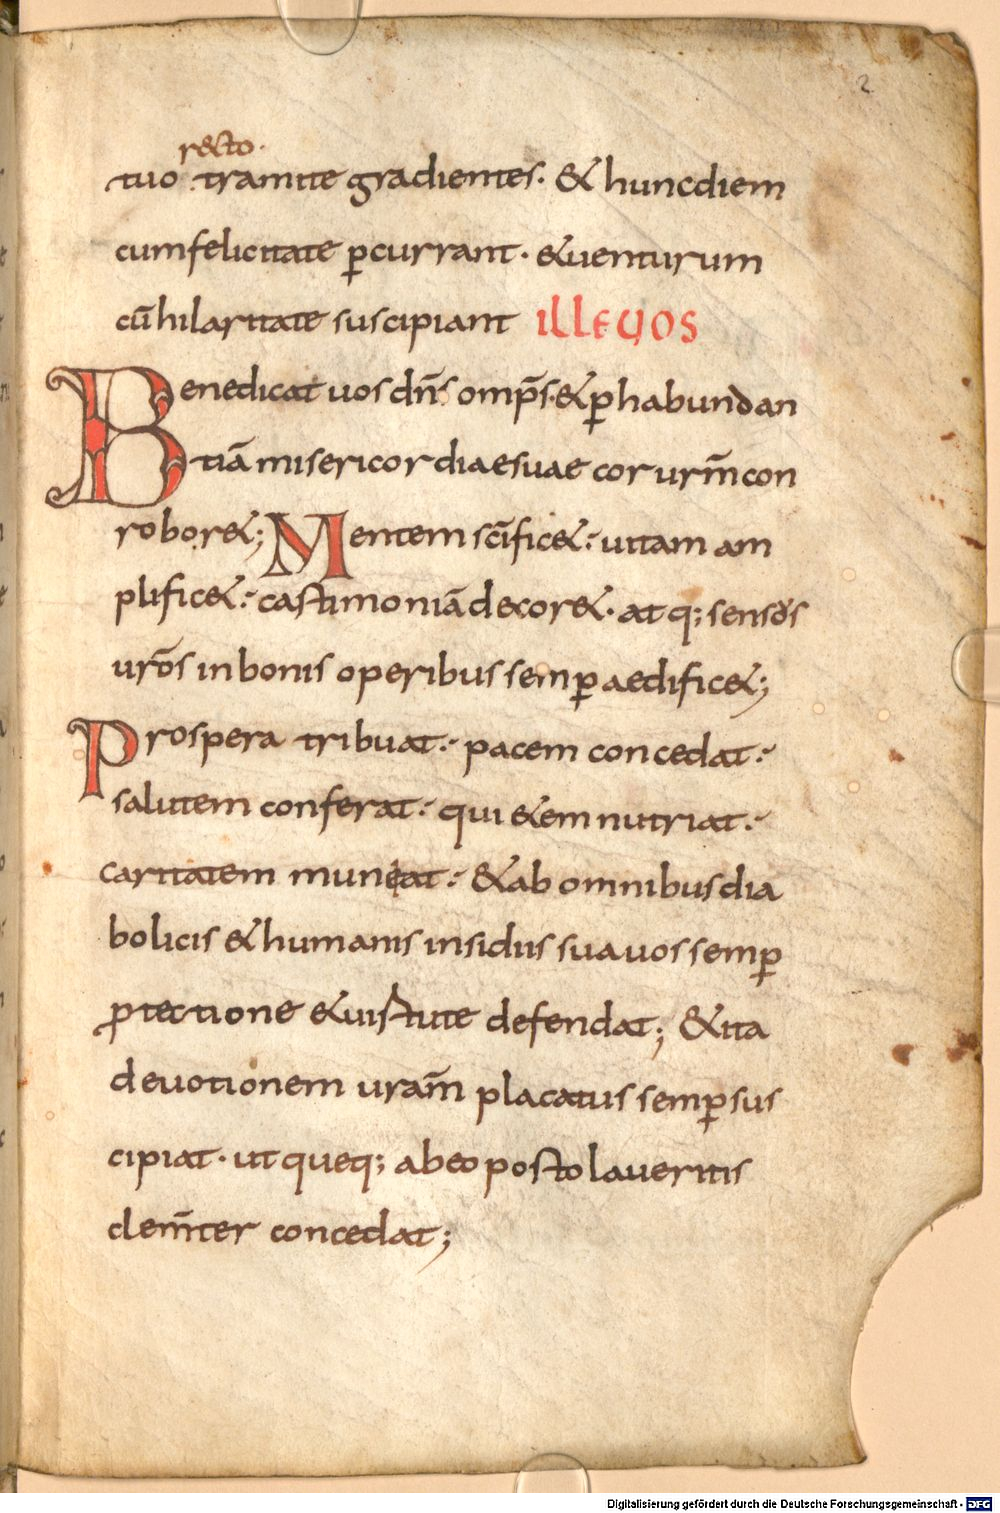 2
recto·
tuo tramite gradientes· & hunc diem
cum felicitate p̄currant· & uenturum
cū hilaritate suscipiant ILLEUOS
Benedicat uos dn̄s omp̄s· & p̄ habundan
tiā misericordiae suae cor urm̄ con
robor&; Mentem sc̄ific&: uitam am
plific&: castimoniā decor&· atq; sensos
uros̄ in bonis operibus semp̄ aedific&;
Prospera tribuat: pacem concedat:
salutem conferat: qui&em nutriat:
caritatem muneat: & ab omnibus dia
bolicis & humanis insidiis sua uos semp̄
ꝓtectione & uirtute defendat; & ita
deuotionem uram̄ placatus semp̄ sus
cipiat· ut queq; ab eo postolaueritis
clem̄ter concedat;
Digitalisierung gefördert durch die Deutsche Forschungsgemeinschaft - DFG